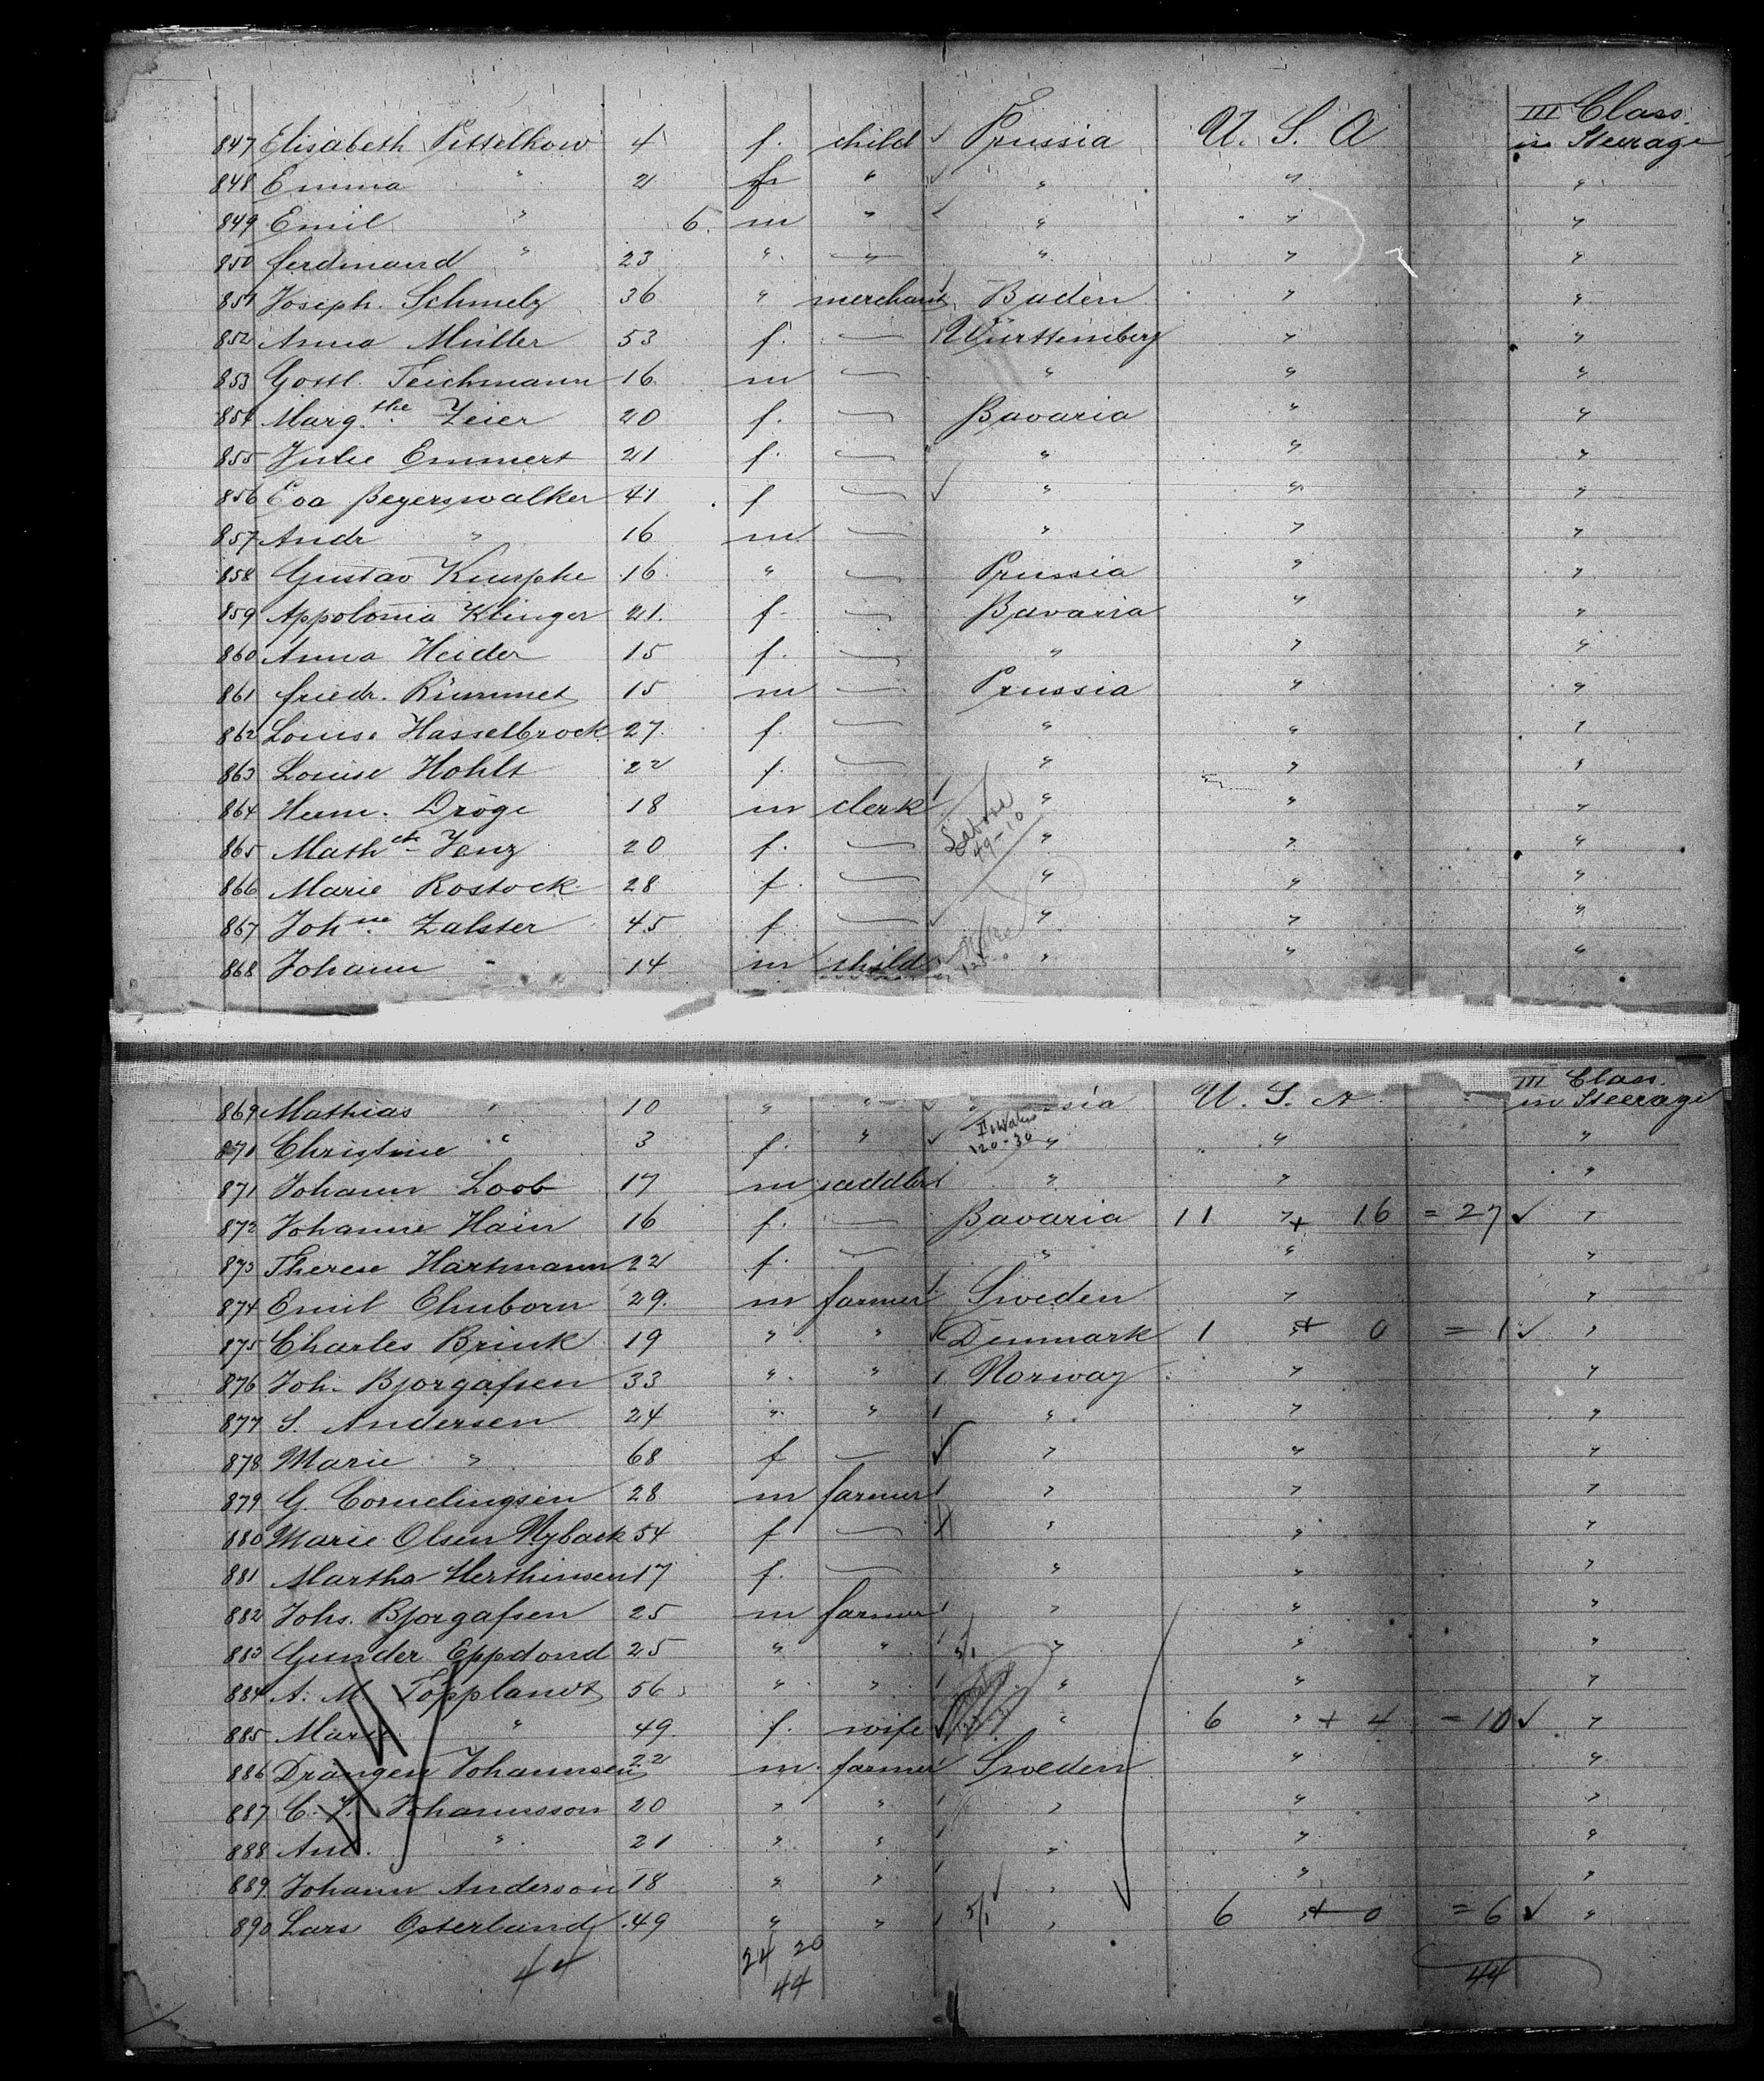 III Class.
847 Elisabeth Pittelkow 4 f. child Prussia U. S. A in Steerage
848 Emma " 2 f " " " "
849 Emil " 6. m " " " "
850 ferdinand " 23 " " " " "
851 Joseph. Schmelz 36 " merchant Baden " "
852 Anna Müller 53 f. — Württemberg " "
853 Gottl. Teichmann 16 m — " " "
854 Marg.the Zeier 20 f. — Bavaria " "
855 Julie Emmert 21 f. — " " "
856 Eva Beyerswalker 41 f — " " "
857 Andr " 16 m — " " "
858 Gustav 16 " — Prussia " "
859 Appolonia Klinger 21. f. — Bavaria " "
860 Anna Heider 15 f. — " " "
861 friedr. Rümmet 15 m — Prussia " "
862 Louise Hasselbrock 27. f. — " " "
863 Louise Hohlt 22 f. — " " "
864 Herm. Dröge 18 m clerk " " "
49-10
865 Math Jenz 20 f. — " " "
866 Marie Rostock 28 f. — " " "
867 Joh.ne Zalster 45 f — " " "
868 Johann " 14 m child " " "
III Class.
869 Mathias " 10 " " sia U. S. A in Steerage
120-30
870 Christine " 3 f. " " " "
871 Johann Loob 17 m saddler " " "
872 Johanne Hain 16 f. — Bavaria 11 " + 16 = 27 ✓ "
873 Therese Hartmann 22 f. — " " "
874 Emil Ehnborn 29. m farmer Sweden " "
875 Charles Brink 19 " " Denmark 1 " + 0 = 1 ✓ "
876 Joh. Bjorgafsen 33 " " Norway " "
877 S. Andersen 24 " " " " "
878 Marie " 68 f — " " "
879 G. Cornelingsen 28 m farmer " " "
880 Marie Olsen Nyback 54 f — " " "
881 Martha Herthinsen 17 f. — " " "
882 Johs. Bjorgafsen 25 m farmer " " "
883 Gunder Eppdond 25 " " " " "
884 A. M Topplandt 56 " " " " "
885 Marie " 49 f. wife " 6 " + 4 = 10 ✓ "
886 Drangen Johannsen 22 m. farmer Sweden " "
887 C. J. Johannsson 20 " " " " "
888 And. " 21 " " " " "
889 Johann Anderson 18 " " " " "
890 Lars Osterlund 49 " " 5/1 " 6 " + 0 = 6 ✓ "
44 24 20 44
44